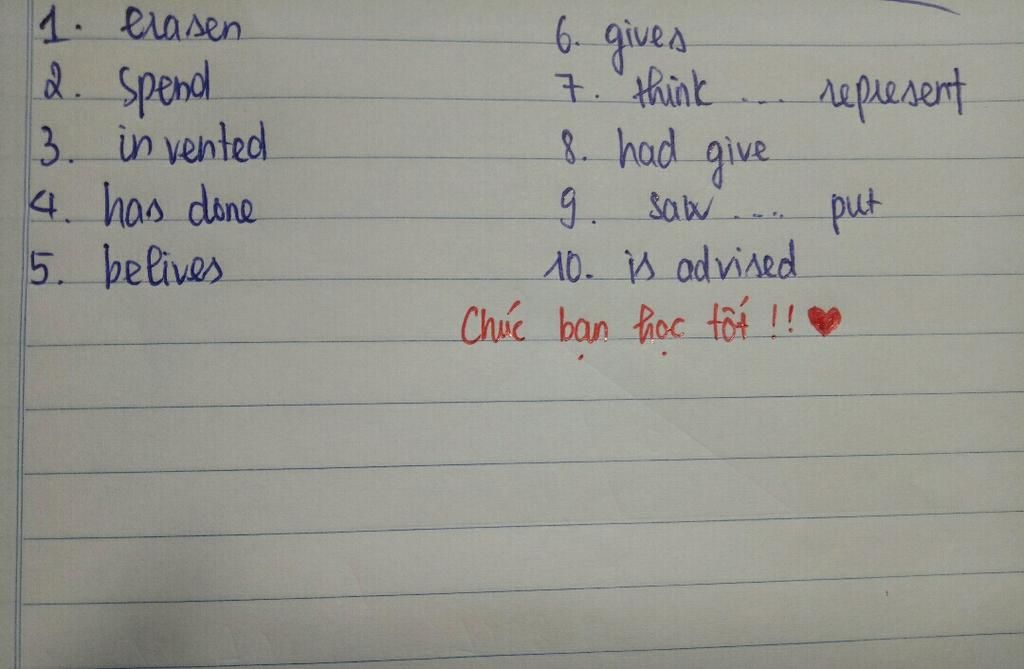 1. erasen
2. spend
3. invented
4. has done
5. belives
6. gives
7. think .... represent
8. had give
9. saw .... put
10. is advised
Chúc bạn học tốt !! ♥